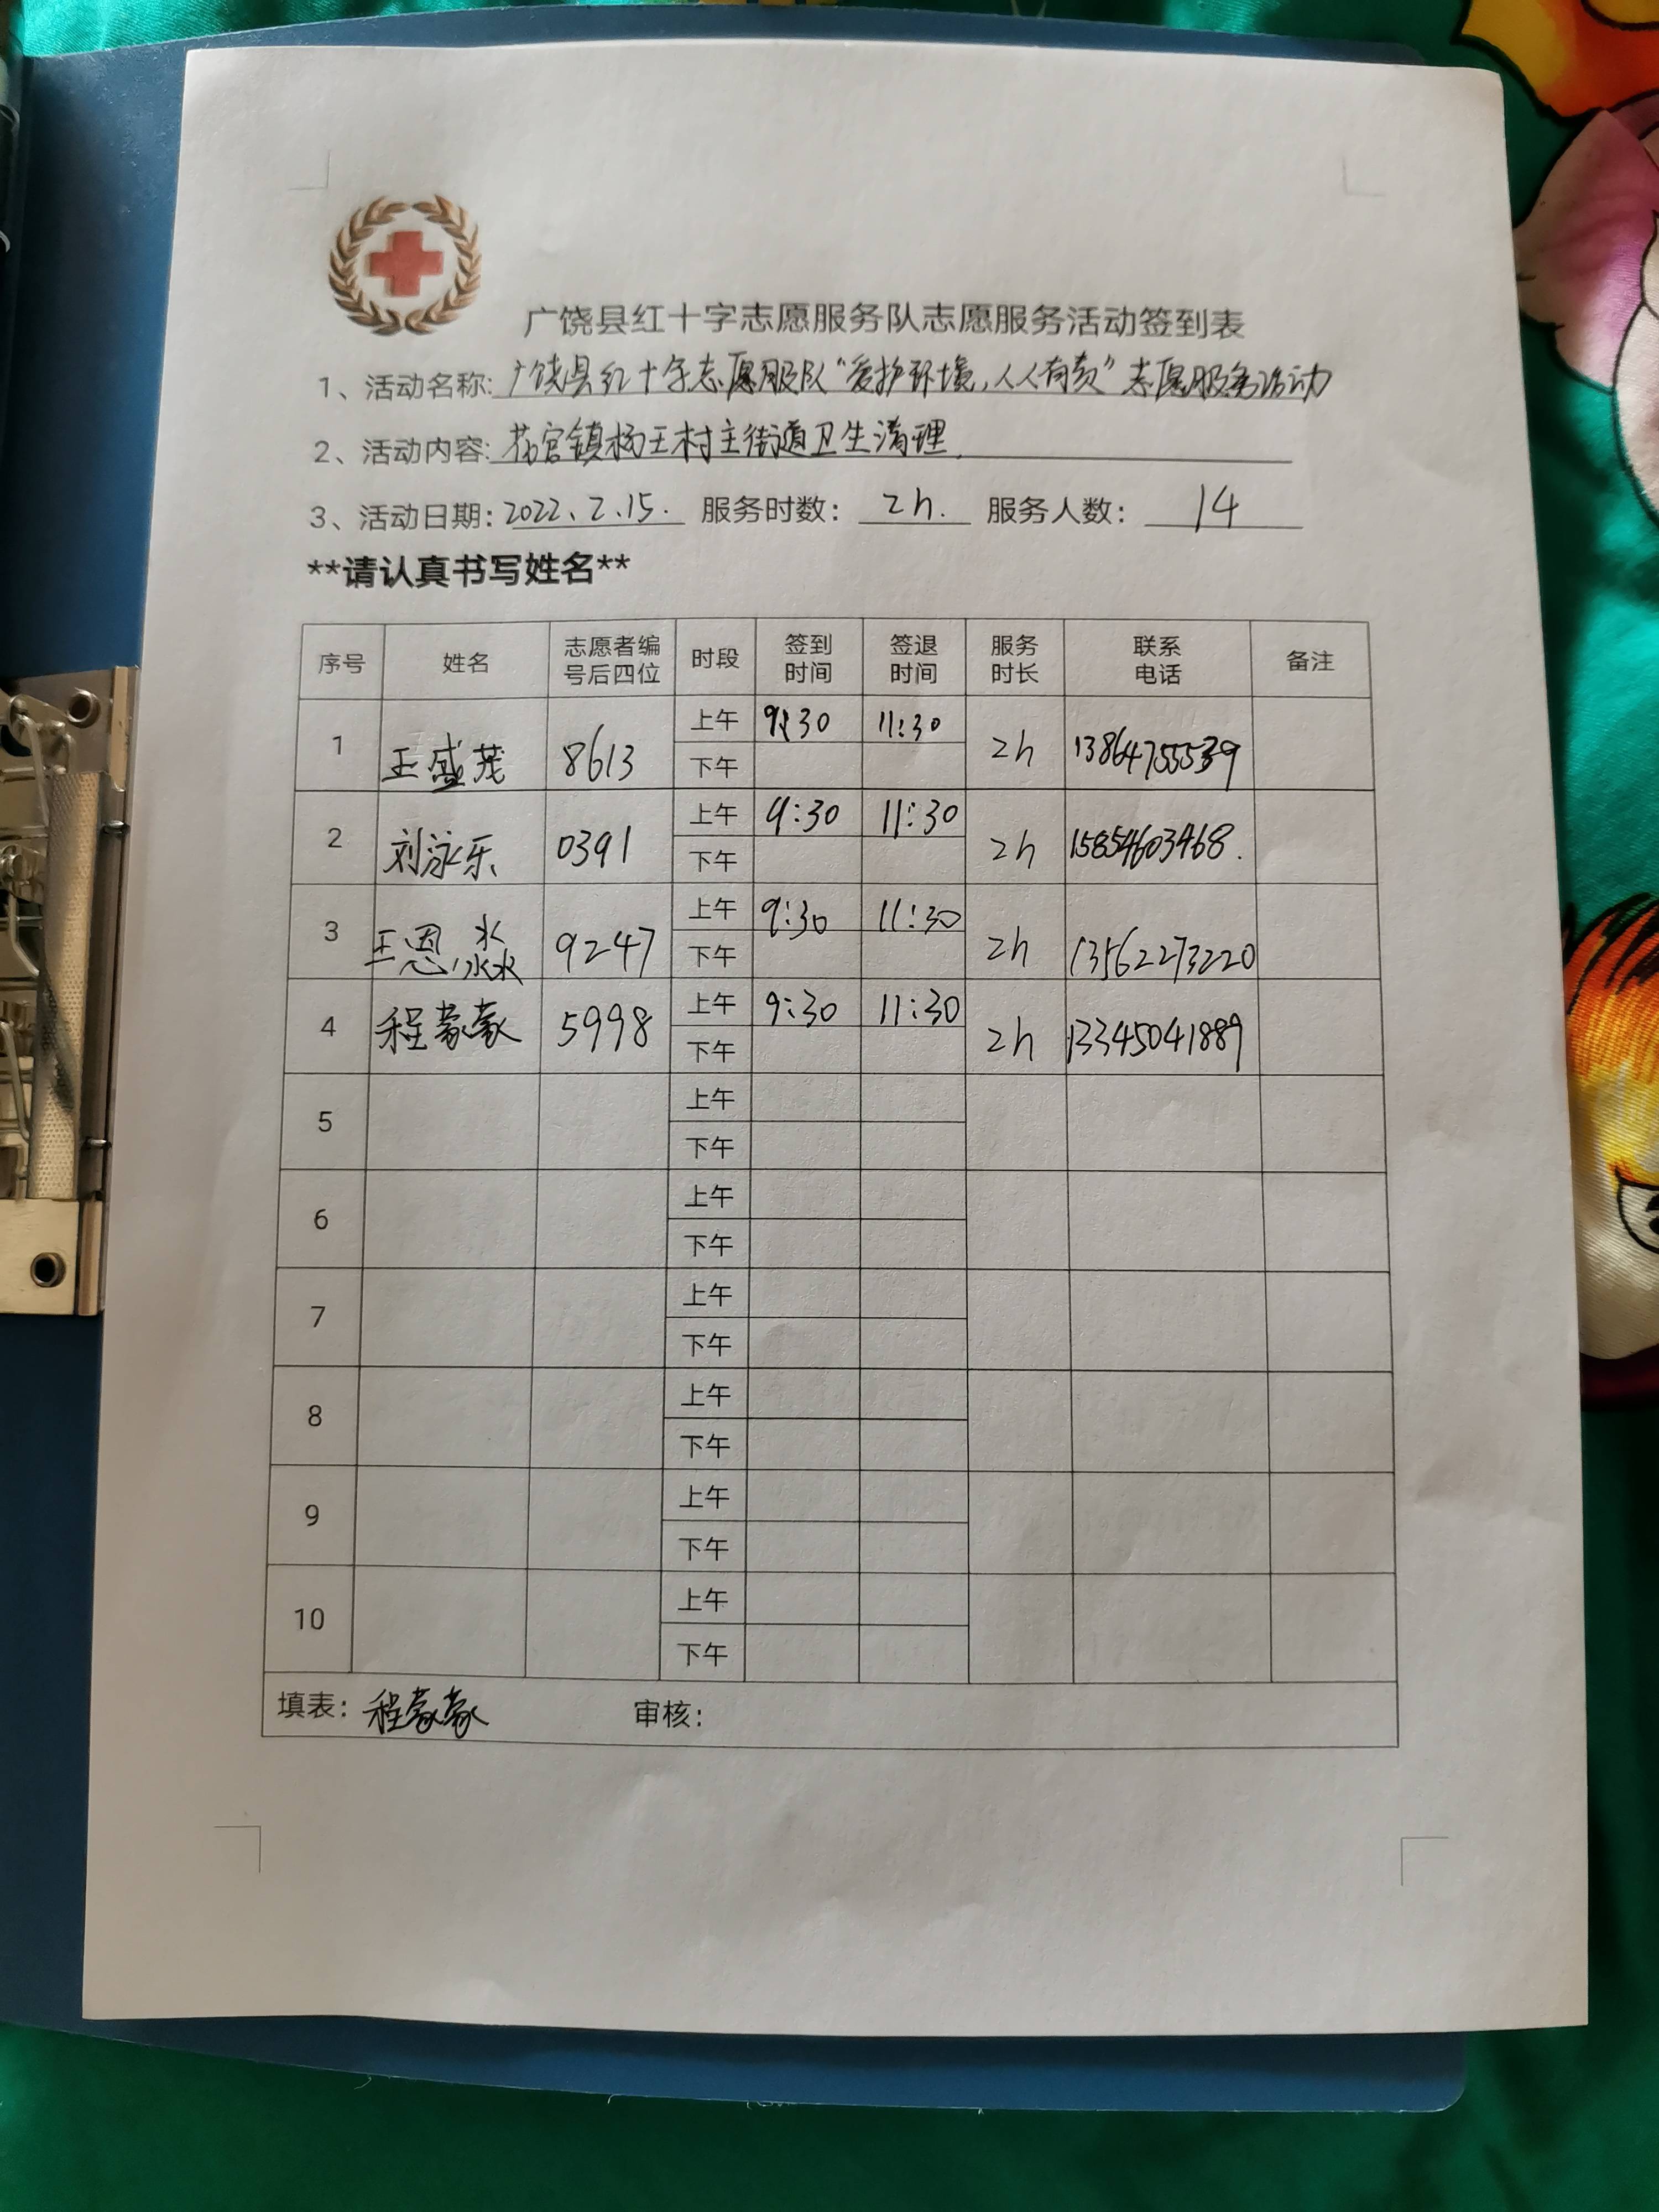 广饶县红十字志愿服务队志愿服务活动签到表
1、活动名称:广饶县红十字志愿服队“爱护环境,人人有责”志愿服务活动
2、活动内容:花官镇杨王村主街道卫生清理.
3、活动日期:2022、2.15. 服务时数: 2h. 服务人数: 14
**请认真书写姓名**
序号 姓名 志愿者编号后四位 时段 签到时间 签退时间 服务时长 联系电话 备注
1 王盛茂 8613 上午 9:30 11:30 2h 13864755539
下午
2 刘泳乐 0391 上午 9:30 11:30 2h 15854603468.
下午
3 王恩淼 9247 上午 9:30 11:30 2h 13562273220
下午
4 程蒙蒙 5998 上午 9:30 11:30 2h 13345041889
下午
5 上午
下午
6 上午
下午
7 上午
下午
8 上午
下午
9 上午
下午
10 上午
下午
填表: 程蒙蒙 审核: